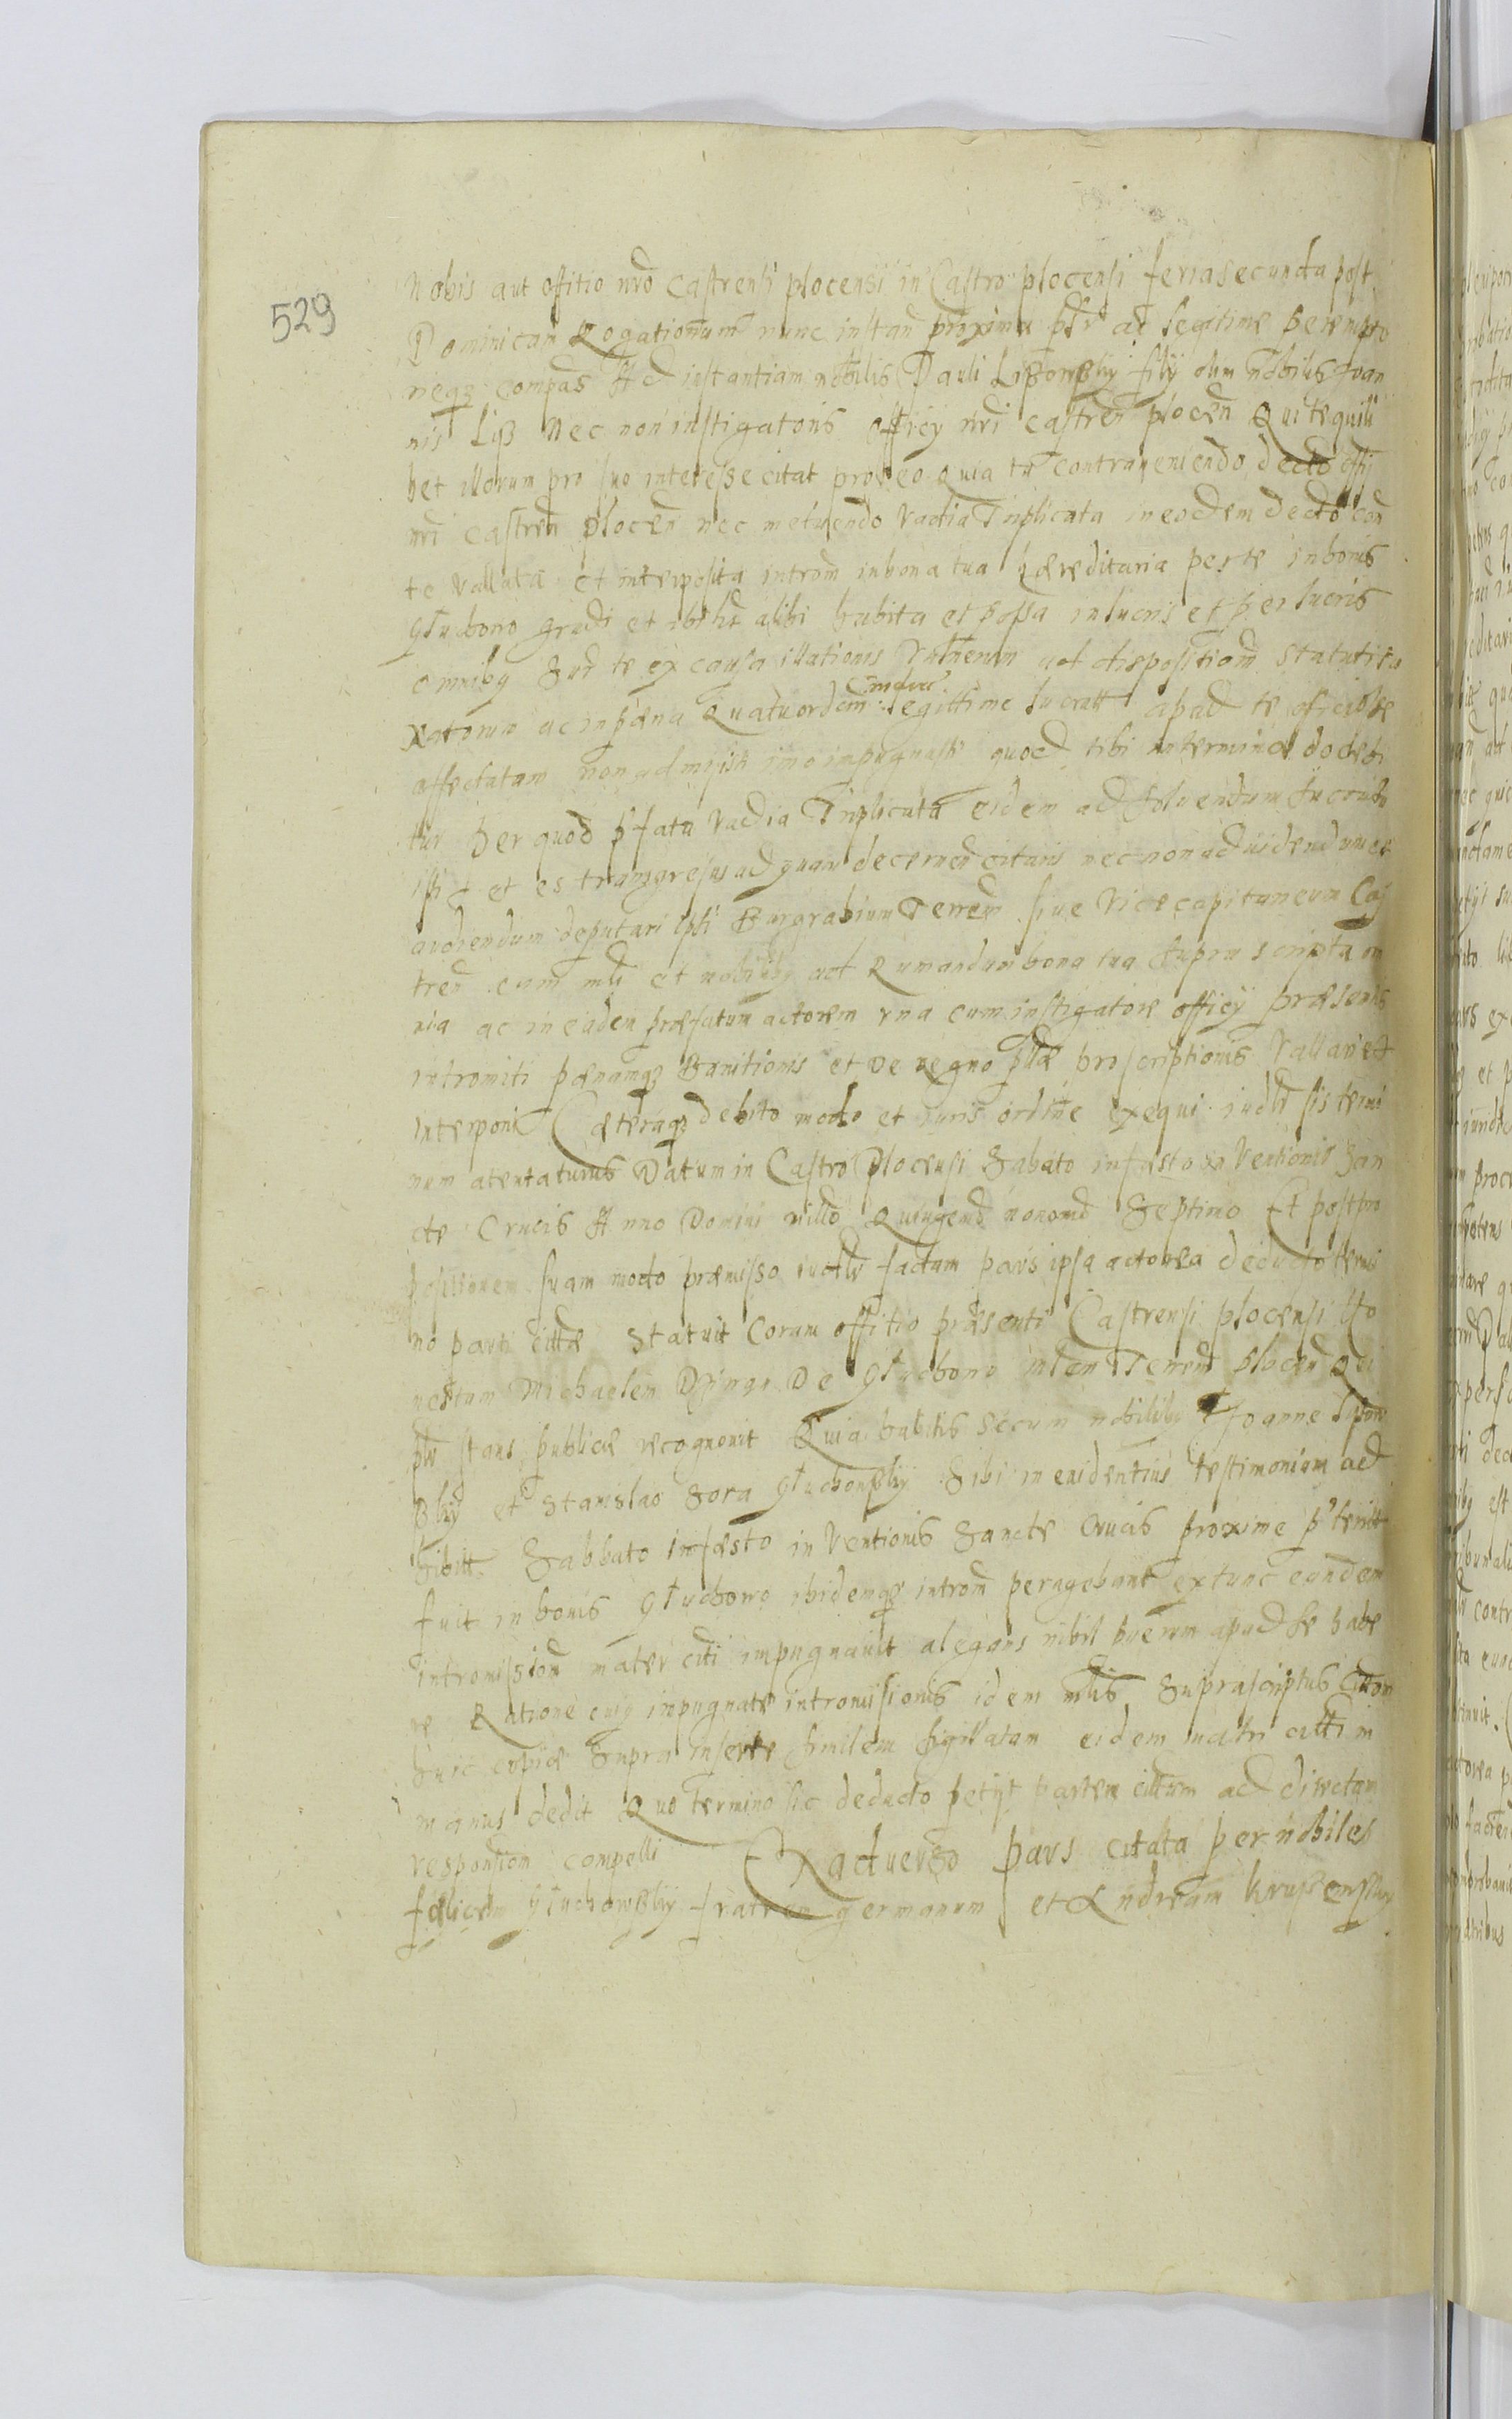 529
Nobis aut offitio nrō Castrensi plocensi in Castro plocensi feria secunda post
Dominicam Rogationum nunc instan proxima psr ac legitime perempto
rieqz compās Ad instantiam nobilis Pauli Lißowßky filÿ olim nobilis Joan
nis Liß Nec non instigatoris officÿ nri castren plocen Qui te quili
bet illorum pro suo interesse citat pro eo Quia tu contraueniendo decto offi
nri castren plocen nec metuendo Vadia Triplicata in eodem decto con
te Vallata et interposita introm in bona tua hæreditaria per te in bonis
Głuchowo gradi et ibi alibi habita et possa in lucris et per lucris
omnibq Sup te ex causa illationis Vulnerum ad dispositiom statuti
ac in pæna Quatuordecim legittime lucratt apud te officiose
affectatam non admisisti imo impugnasti quod tibi in termino docebi
tur Per quod pfata Vadia Triplicata eidem ad soluendum sucubu
isti et es transgressus ad quam decernen citaris nec non ad uidendum et
audiendum deputari ipsi Burgrabium Terren siue Vicecapitaneum Cas
tren cum mli et nobilibq ad Rumandum bona tua supra scripta om
nia ac in eadem præfatum actorem vna cum instigatore officÿ præsentis
intromiti pænamqz Banitionis et de regno proscriptionis Vallari et
interponi Cæteraqz debito modo et iuris ordine exequi iudlr sis termi
num atentaturus Datum in Castro Plocensi Sabato in fæsto in Ventionis San
cte Crucis Anno Domini millō Quingemō nonomō Septimo Et post pro
positionem suam modo præmisso iudlr factam pars ipsa actorea deducto termi
no parti cittæ Statuit Coram offitio præsenti Castrensi plocensi Ho
nestum Michaelem de Głuchowo Terren plocen Qui
stans publicæ recognouit Quia habitis secum nobilibq Joanne
ßky et Stanislao Gora Głuchowßky Sibi in euidentius testimonium ad
hibitt Sabbato in fæsto in Ventionis Sancte Crucis proxime pteritt
fuit in bonis Głuchowo ibidemqz introm peragebant extunc eandem
intromissiom mater citti impugnauit alegans nihil puerum apud se habe
re Ratione cuiq impugnate intromissionis idem mlis Supra scriptus
huic copiæ Supra inserte similem sigillatam eidem matri citti in
manus dedit Quo termino sic deducto petÿt partem cittam ad directam
responsiom compelli Ex aduerso pars citata per nobiles
fælicem Głuchowßky fratrem germanum et Andream